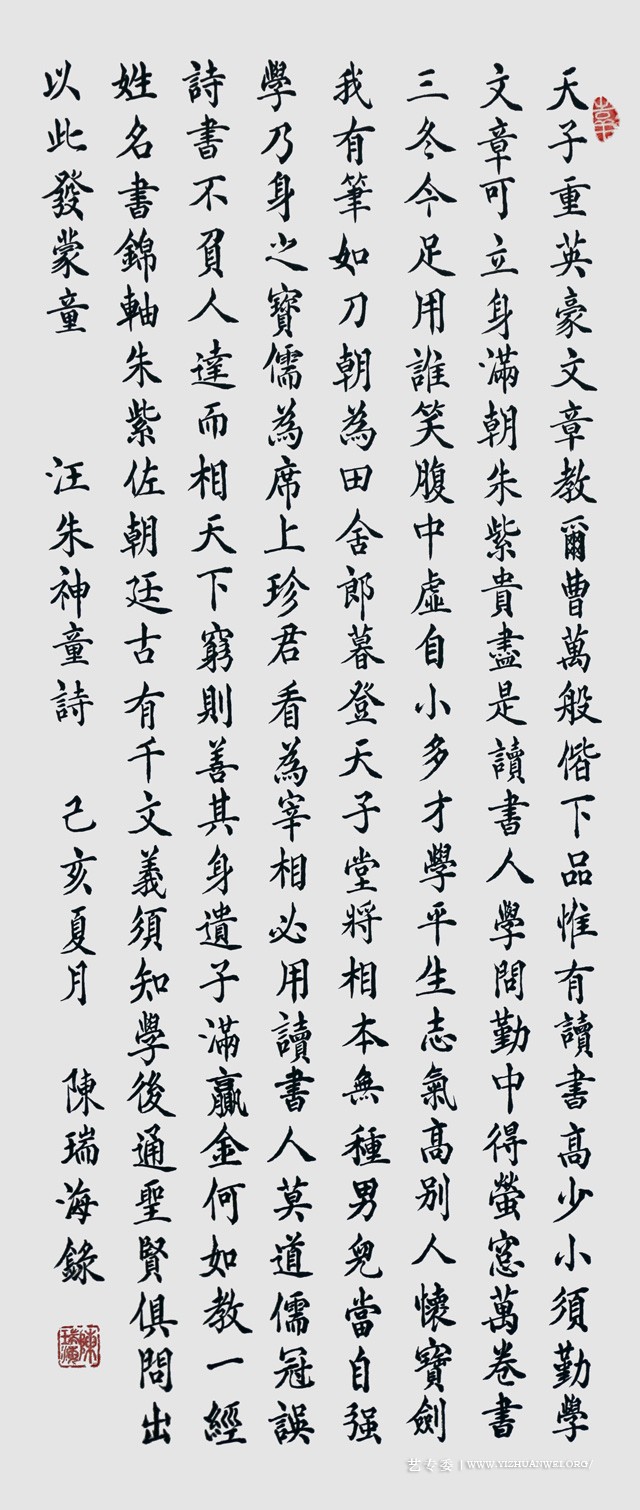 天子重英豪文章教爾曹萬般偕下品惟有讀書高少小須勤學
文章可立身滿朝朱紫貴盡是讀書人學問勤中得螢窓萬卷書
三冬今足用誰笑腹中虛自小多才學平生志氣高別人懷寶劍
我有筆如刀朝為田舍郎暮登天子堂將相本無種男兒當自强
學乃身之寶儒為席上珍君看為宰相必用讀書人莫道儒冠誤
詩書不負人達而相天下窮則善其身遺子滿贏金何如教一經
姓名書錦軸朱紫佐朝廷古有千文義須知學後通聖賢俱問出
以此發蒙童 汪朱神童詩 己亥夏月 陳瑞海錄
艺专委 | WWW.YIZHUANWEI.ORG/